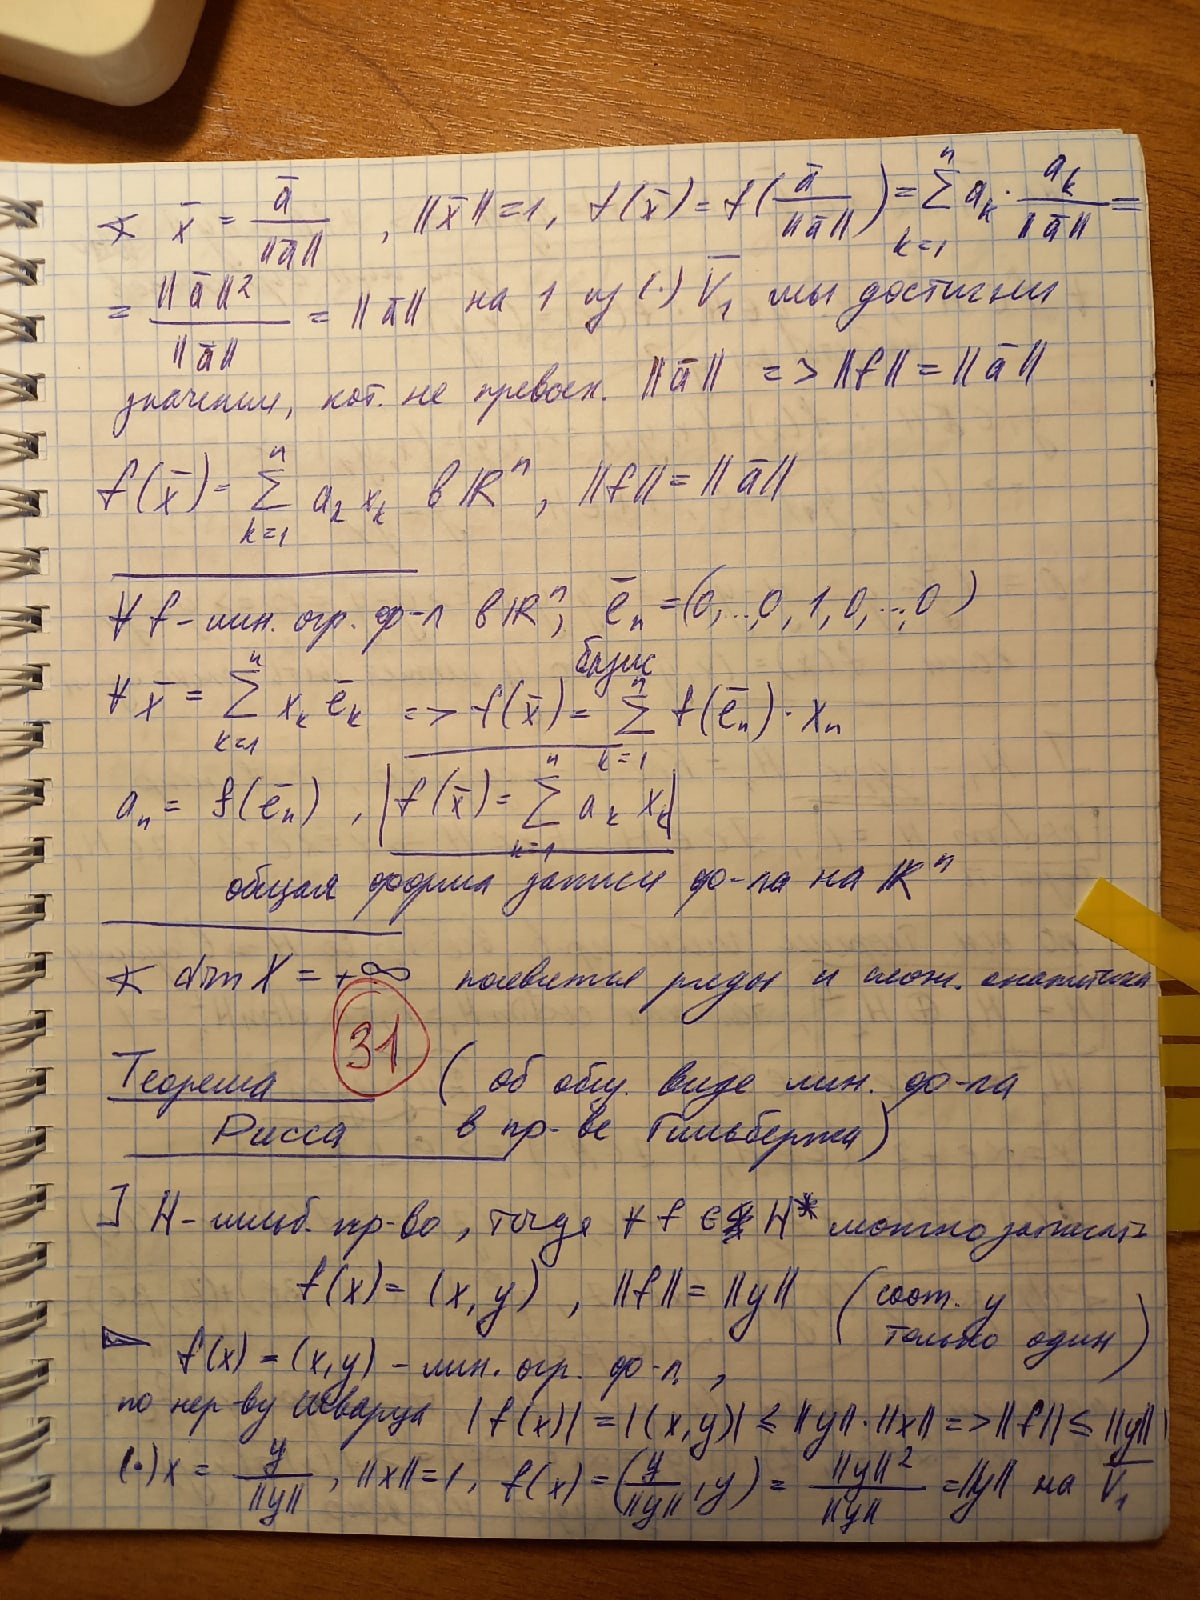 ∢ x̄ = ā/‖ā‖ , ‖x̄‖=1, f(x̄) = f(ā/‖ā‖) = ∑_{k=1}^{n} a_k · a_k/‖ā‖ =
= ‖ā‖²/‖ā‖ = ‖ā‖ на 1 из (·) V̄₁ мы достигли
значения, кот. не превосх. ‖ā‖ => ‖f‖ = ‖ā‖
f(x̄) = ∑_{k=1}^{n} a_k x_k в ℝⁿ, ‖f‖ = ‖ā‖
∀ f - лин. огр. ф-л в ℝⁿ, ē_n = (0,...,0, 1, 0,...,0)
базис
∀ x̄ = ∑_{k=1}^{n} x_k ē_k => f(x̄) = ∑_{k=1}^{n} f(ē_n) · x_n
a_n = f(ē_n) , |f(x̄) = ∑_{k=1}^{n} a_k x_k|
общая форма записи ф-ла на ℝⁿ
∢ dim X = +∞ появятся ряды и слож.
31
Теорема (об общ. виде лин. ф-ла
Рисса в пр-ве Гильберта)
] H - гильб. пр-во, тогда ∀ f ∈ H* можно записать
f(x) = (x, y) , ‖f‖ = ‖y‖ (соот. y
только один)
▷ f(x) = (x, y) - лин. огр. ф-л,
по нер-ву Шварца |f(x)| = |(x, y)| ≤ ‖y‖·‖x‖ => ‖f‖ ≤ ‖y‖
(·) x = y/‖y‖ , ‖x‖=1, f(x) = (y/‖y‖ , y) = ‖y‖²/‖y‖ = ‖y‖ на V̄₁